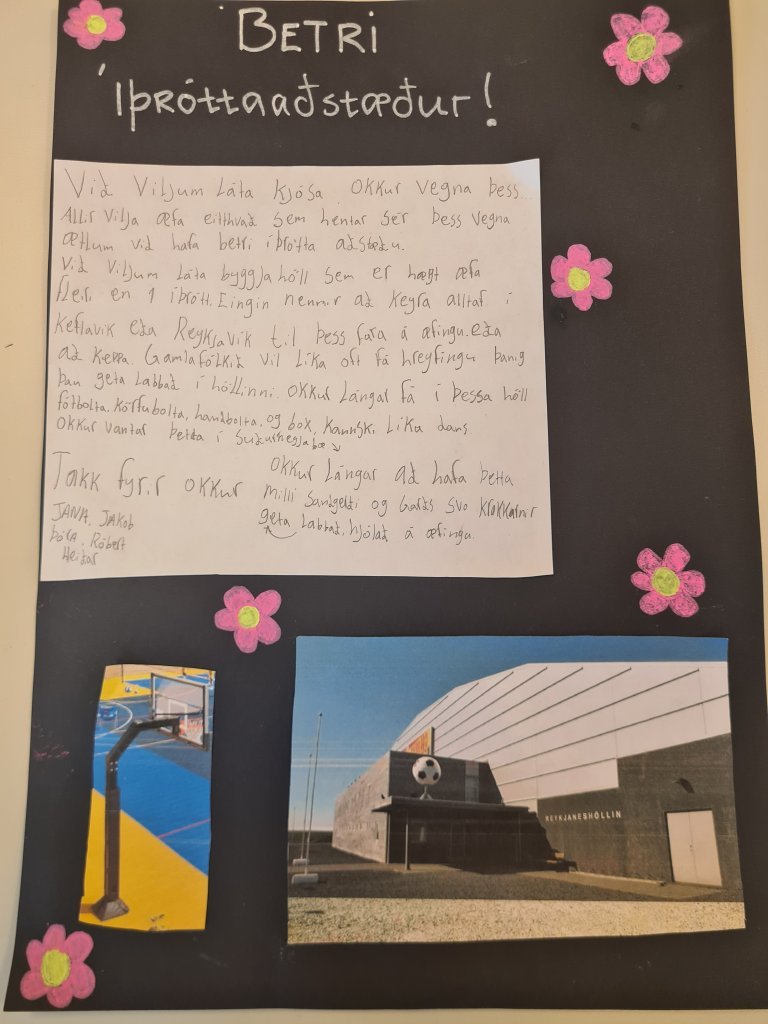 BETRI
Íþróttaaðstæður!
Við viljum láta kjósa okkur vegna þess
Allir vilja æfa eitthvað sem hentar sér þess vegna
ætlum við hafa betri íþrótta aðstæðu.
Við viljum láta byggja höll sem er hægt æfa
fleiri en 1 íþrótt. Eingin nennir að keyra alltaf í
keflavík eða Reykjavík til þess fara á æfingu. eða
að keppa. Gamlafólkið vil líka oft fá hreyfingu þanig
þau geta labbað í höllinni. okkur Lángar fá í þessa höll
fótbolta, körfubolta, handbolta, og box, kannski líka dans.
okkur vantar þetta í suðurnesjabæ
okkur Lángar að hafa þetta
milli sandgerði og Garðs svo krakkarnir
geta labbað, hjólað á æfingu.
Takk fyrir okkur
JANA, JAkob
Þóra, Róbert
Heiðar
REYKJANESHÖLLIN